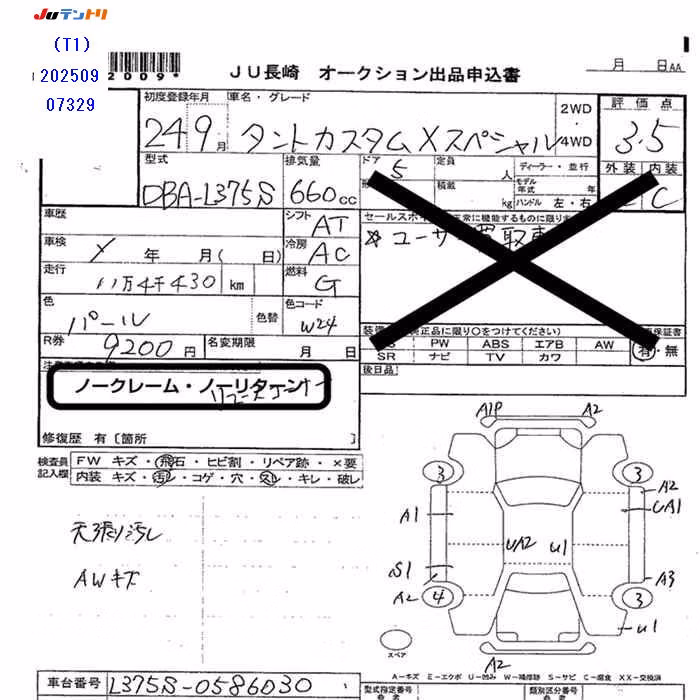 JUテントリ
(T1)
202509
07329
2009*
JU長崎 オークション出品申込書
月 日AA
初度登録年月 車名・グレード 2WD・4WD 評価点
24 9月 タントカスタムXスペシャル 3.5
型式 排気量 ドア 定員 ディーラー・並行 外装 内装
DBA-L375S 660cc 5 人 モデル年式 年 C
積載 kg ハンドル 左・右
車歴 シフト AT
車検 年 月( 日) 冷房 AC
走行 11万4千430 km 燃料 G
色 パール 色替 色コード W24
R券 9200円 名変期限 月 日
SR PW ABS エアB AW
ナビ TV カワ 有・無
後日品
ノークレーム・ノーリターン
リユースコーナー
修復歴 有〔箇所 〕
検査員記入欄 FW キズ・飛石・ヒビ割・リペア跡・×要
内装 キズ・汚レ・コゲ・穴・スレ・キレ・破レ
天張り汚レ
AWキズ
A1P A2
3 3
A2
A1 UA1
UA2 U1
S1 A3
A2 4 3
U1
スペア
A2
A-キズ E-エクボ U-凹み W-補修跡 S-サビ C-腐食 XX-交換済
車台番号 L375S-0586030
型式指定番号 類別区分番号